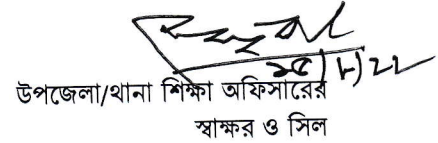 উপজেলা/থানা শিক্ষা অফিসারের
স্বাক্ষর ও সিল